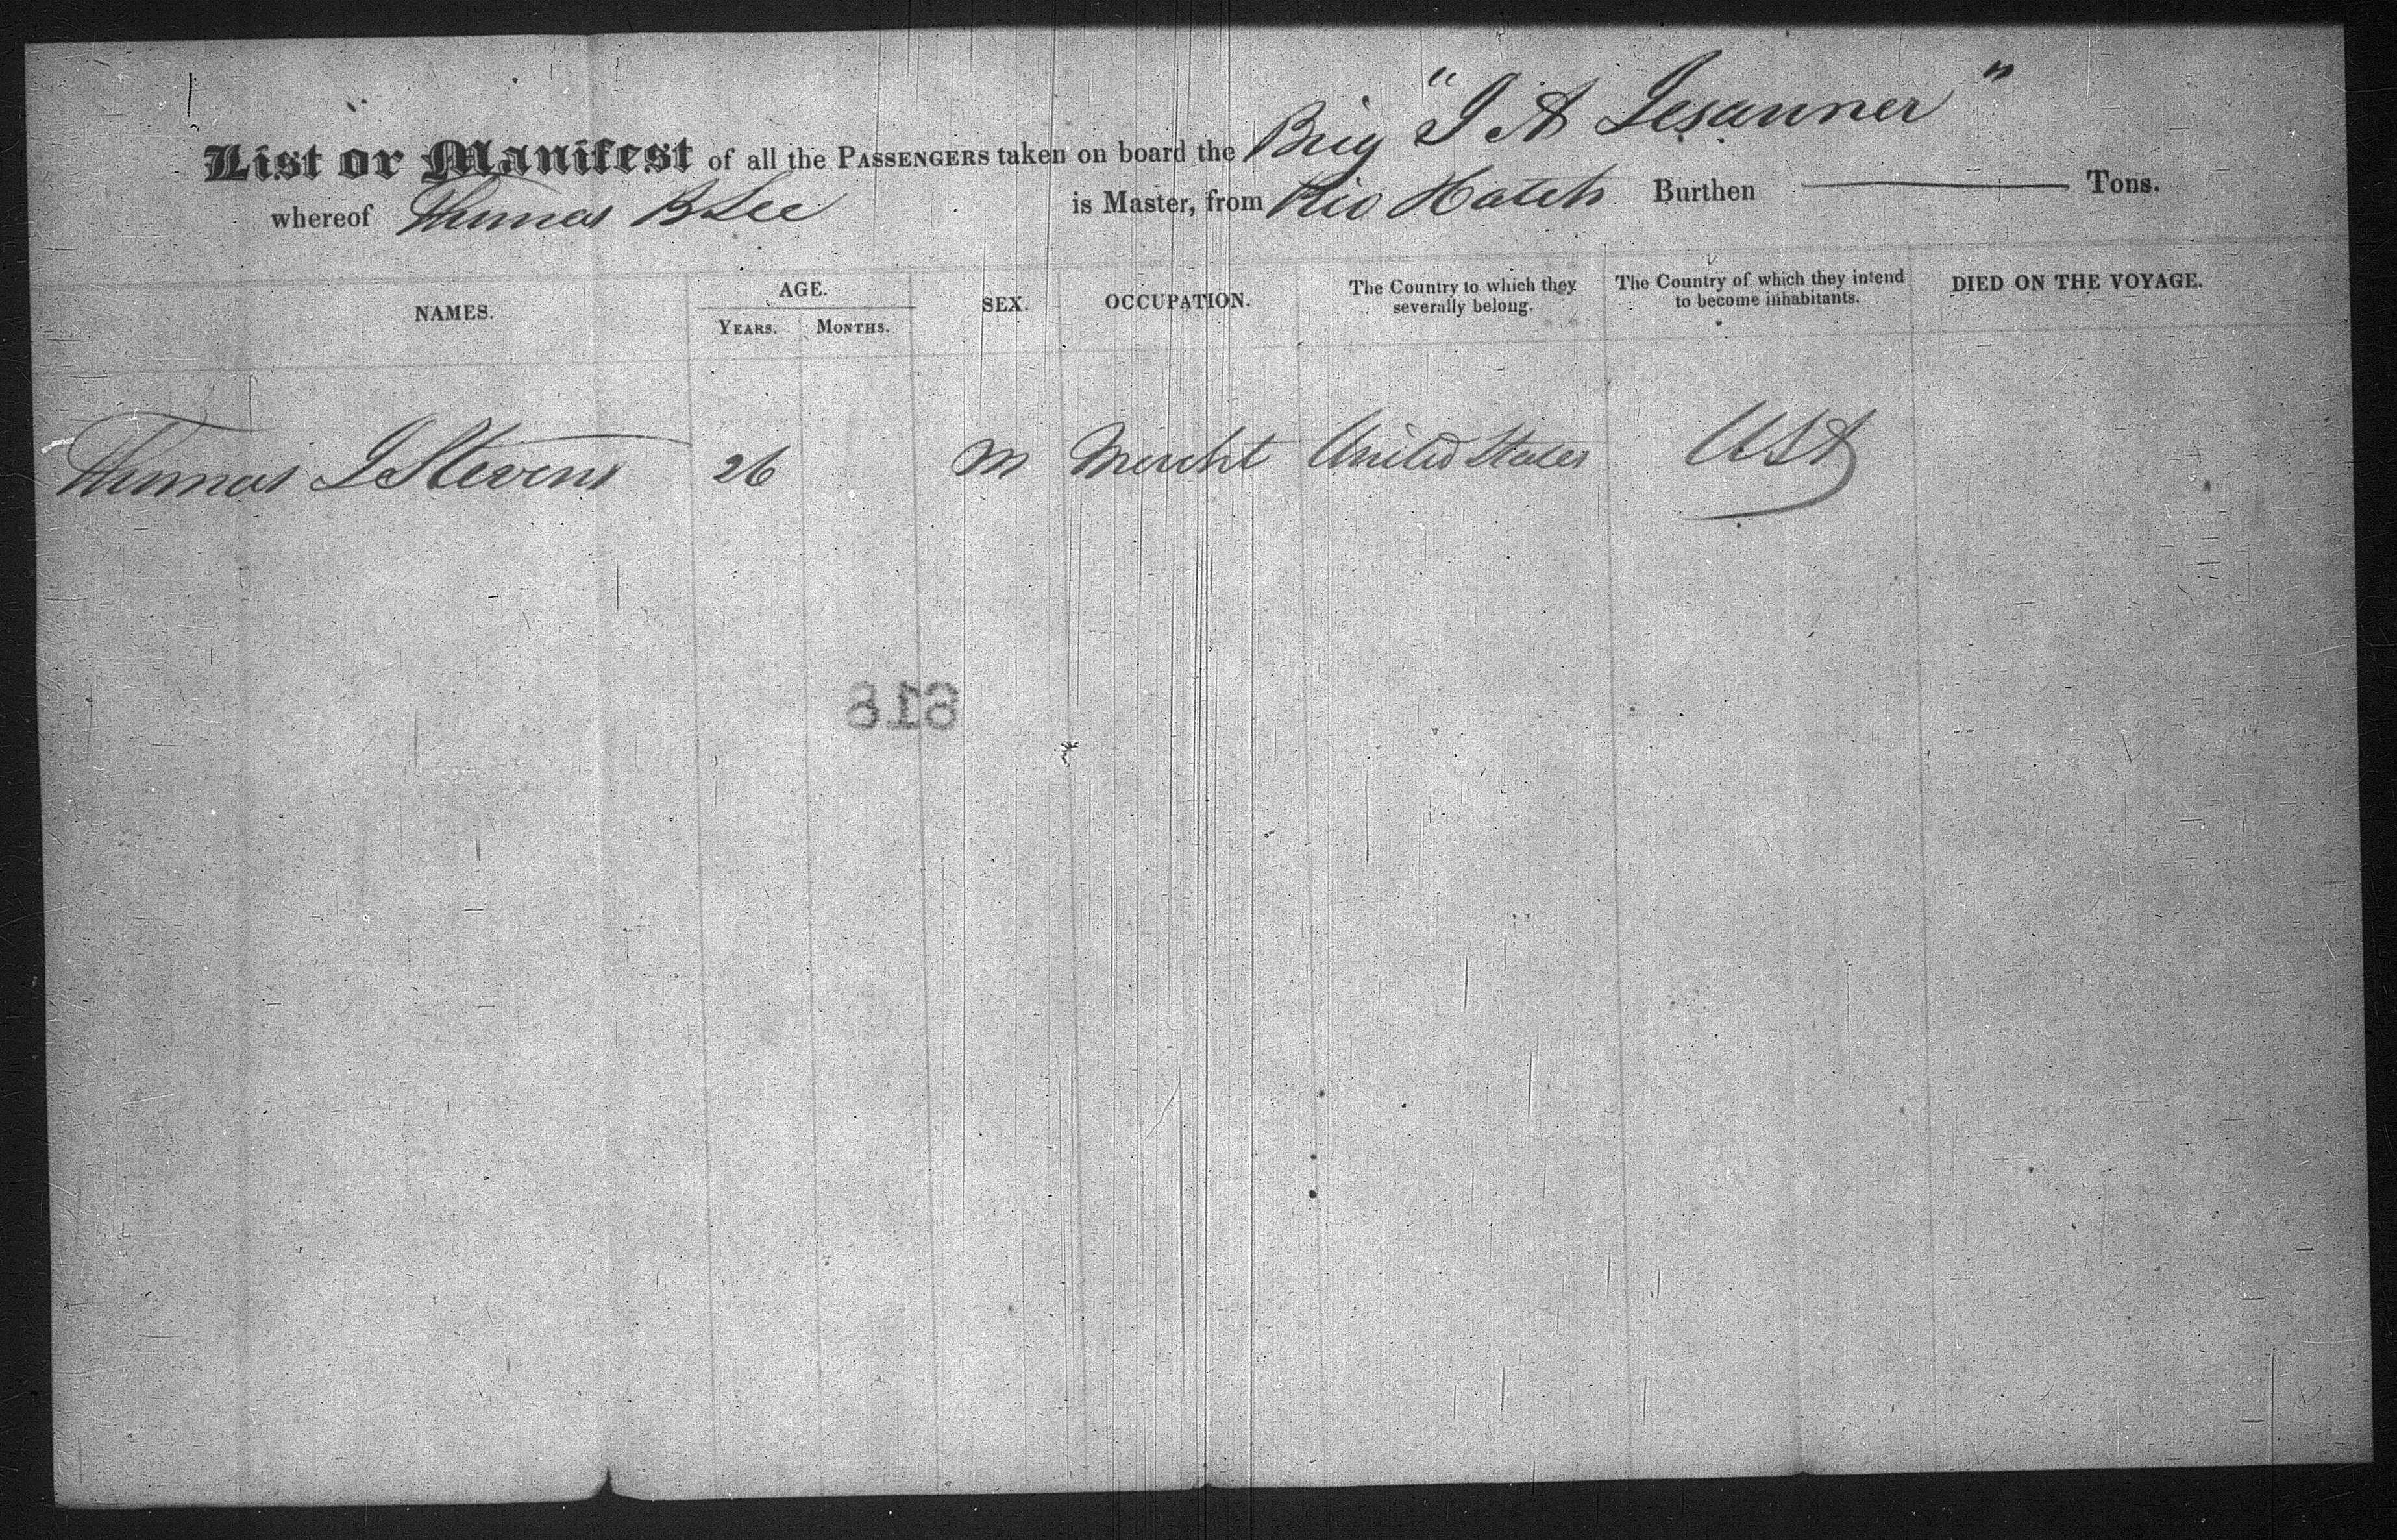 List or Manifest of all the PASSENGERS taken on board the Brig "J A Jesauner"
whereof Thomas B Lee is Master, from Rio Hatch Burthen ——— Tons.
NAMES. AGE. SEX. OCCUPATION. The Country to which they severally belong. The Country of which they intend to become inhabitants. DIED ON THE VOYAGE.
YEARS. MONTHS.
Thomas J Stevens 26 M Mercht United States USA
618